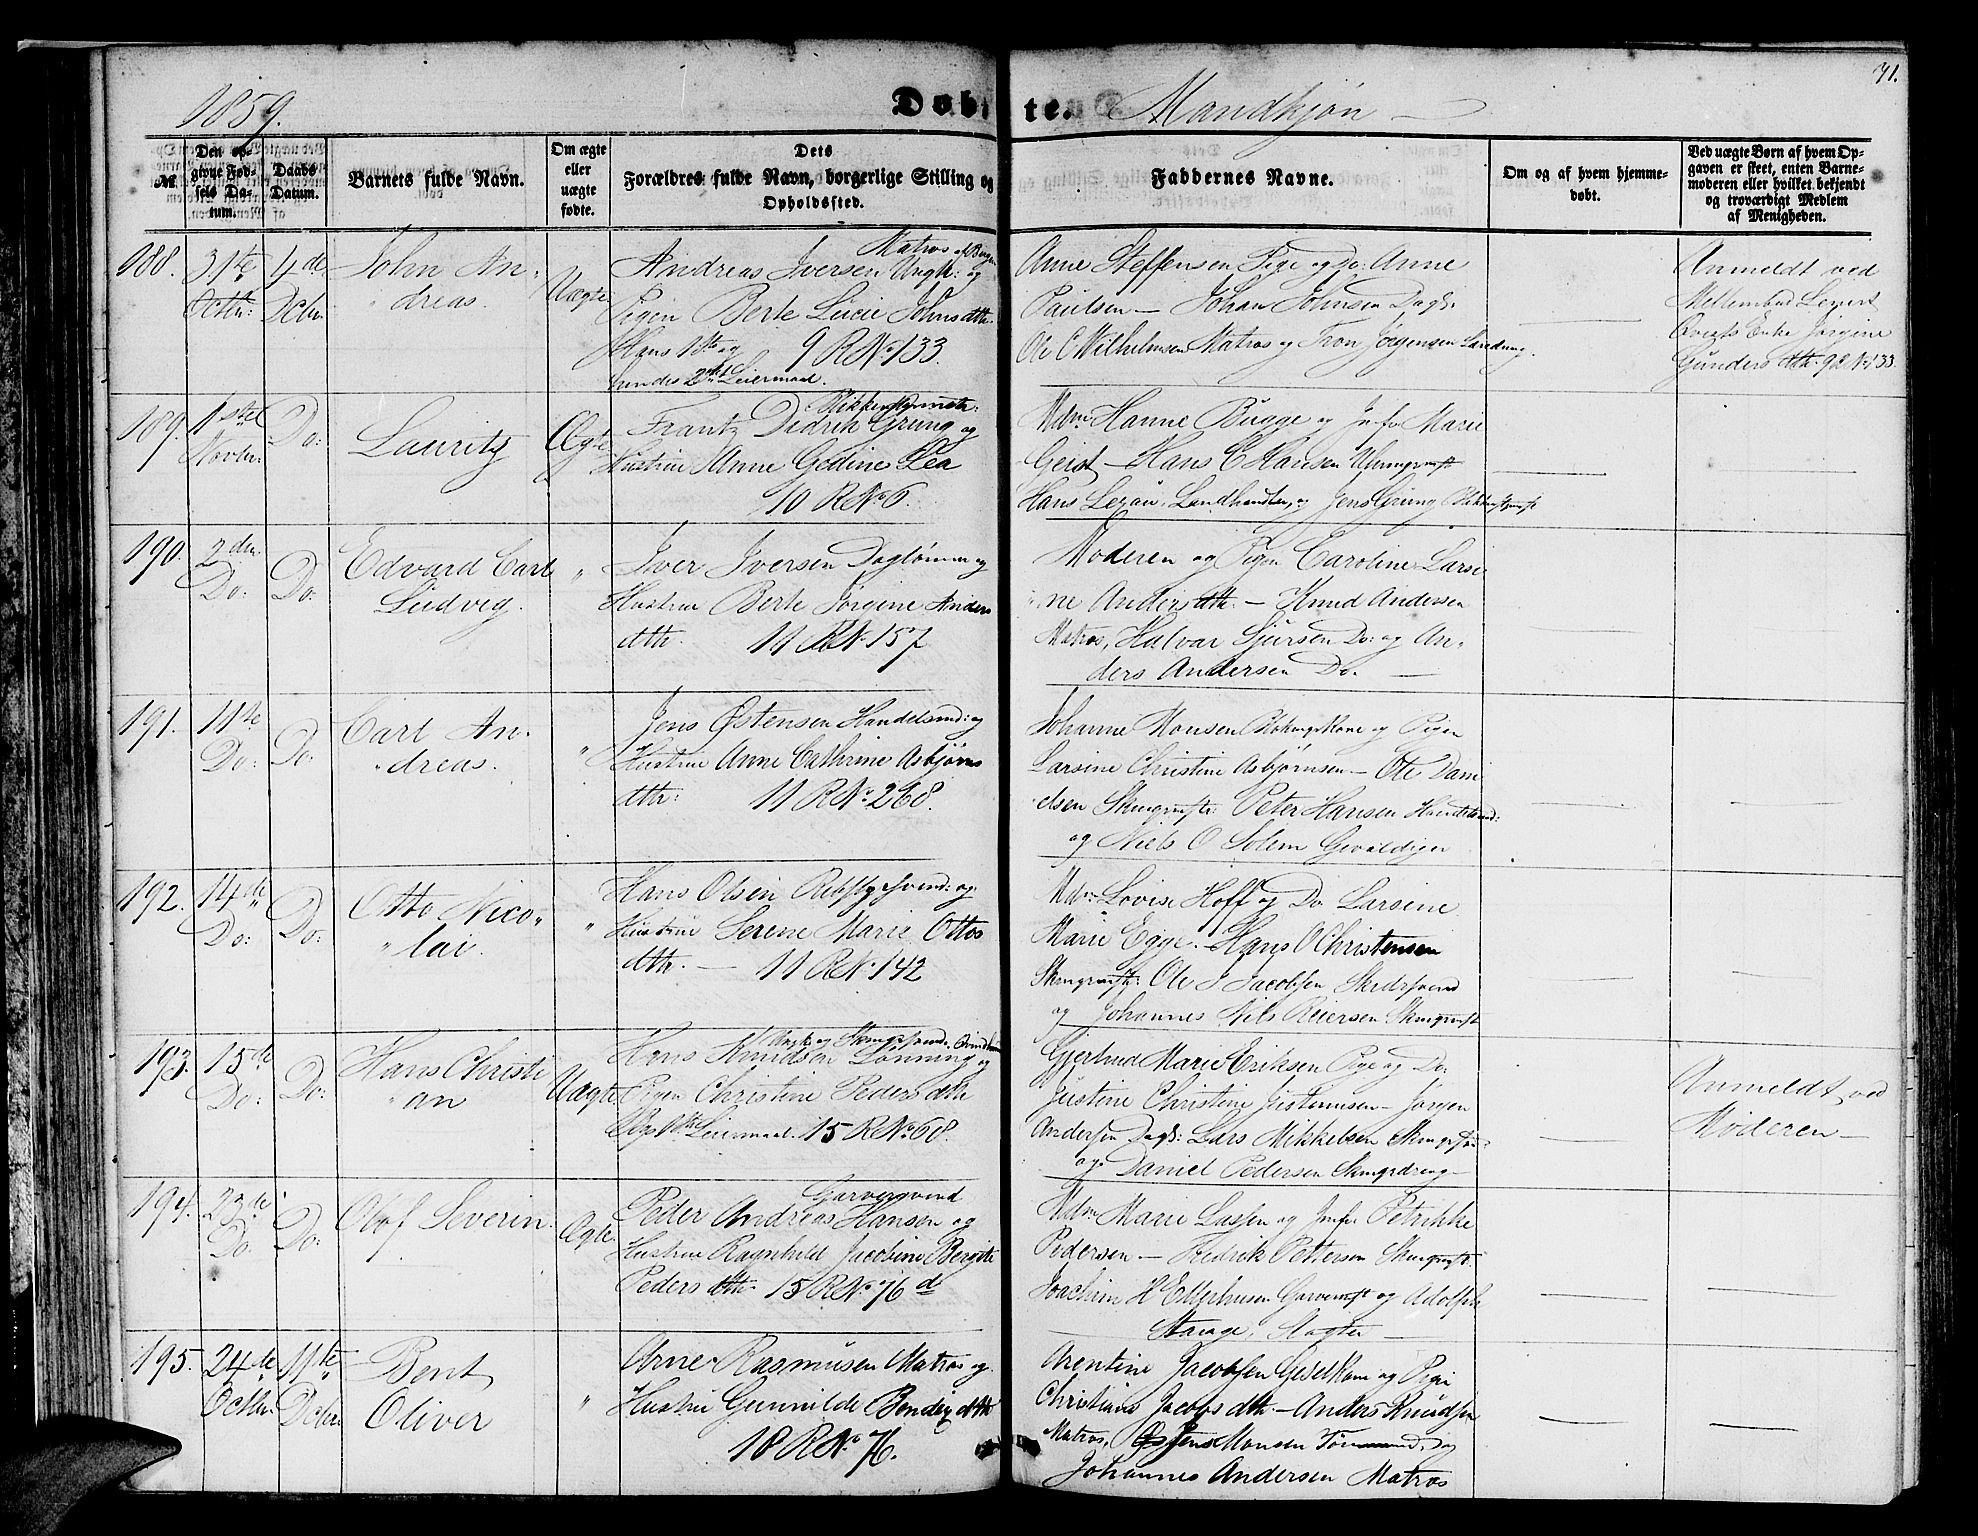 1859.
Døbte. Mandkjøn
71.
№
Den opgivne Fødsels Datum.
Daabs Datum.
Barnets fulde Navn.
Om ægte eller uægte fødte.
Dets Forældres fulde Navn, borgerlige Stilling og Opholdssted.
Faddernes Navne.
Om og af hvem hjemmedøbt.
Ved uægte Børn af hvem Opgaven er skeet, enten Barnemoderen eller hvilket bekjendt og troværdigt Medlem af Menigheden.
188. 31te Octbr: 4de Decbr: John Andreas. Uægte
Matros af Bergen
Andreas Iversen Ungk: og
Pigen Berte Lucie Johnsdttr:
Hans 1ste og 9 R No 133.
hendes 2det Leiermaal.
Anne Steffensen Pige og Do: Anne
Paulsen — Johan Johnsen Dagl:
Ole C Wilhelmsen Matros og Tron Jørgensen
Anmeldt ved
Enke Jørgine
Gundersdttr: 9 R No 133
189. 1ste Novbr: Do: Lauritz Ægte
Frantz Didrik Grung og
Hustrue Anne Gedine Lea
10 R No 6.
Mdm: Hanne Bugge og Jmfr Marie
Geist — Hans C Hansen
Hans Lexau, Landhandler, og Jens Grung
190. 2den Do: Do: Edvard Carl Ludvig. "
Iver Iversen Daglønner og
Hustrue Berte Jørgine Anders
dttr. 11 R No 157
Moderen og Pigen Caroline Larsi
ne Andersdttr: — Knud Andersen
Matros, Halvar Sjursen Do: og An,
ders Andersen Do. —
191. 11te Do: Do: Carl Andreas. "
Jens Østensen Handelsmd: og
Hustrue Anne Cathrine Asbjørns
dttr: 11 R No 268.
Johanne Monsen og Pigen
Larsine Christine Asbjørnsen — Ole Dani
elsen Skmgrmstr: Peter Hansen Handelsmd:
og Niels O Solem Gevaldiger
192. 14de Do: Do: Otto Nicolai. "
Hans Olsen Rebslgrsvend: og
Hustrue Serene Marie Ottos
dttr. — 11 R No 142
Mdm: Lovise Hoff og Do Larsine
Marie Egge. — Hans O Christensen
Skmgrmstr: Ole J Jacobsen Skrdrsvend
og Johannes Nils Reiersen Skmgrmstr
193. 15de Do: Do: Hans Christian Uægte
Ungk og Skmgrsvend.
Hans Knudsen Lønning og
Pigen Christine Pedersdttr
Leiermaal. 15 R No 68.
Gjertrud Marie Eriksen Pige og Do:
Justine Christine — Jørgen
Andersen Dagl: Lars Mikkelsen
og Daniel Pedersen Skmgrdreng —
Anmeldt ved
Moderen —
194. 23de Do: Do: Olof Severin. Ægte
Garversvend
Peder Andreas Hansen og
Hustrue Ragnhild Jacobine Bergitte
Pedersdttr. 15 R No 76 d
Mdm: Marie Lassen og Jmfr Petrikke
Pedersen — Fredrik Pettersen Skmgrmstr.
Joachim H Ellerhusen Garvermstr og Adolph
Stange, Slagter —
195. 24de Octbr. 11te Decbr. Bent Oliver "
Arne Rasmusen Matros og
Hustrue Gunnilde Bendixdttr
18 R No 76.
Arentine Jacobsen Geselkone og Pige
Christiane Jacobsdttr. — Anders Knudsen
Matros, Jens Monsen Tømmermd, og
Johannes Andersen Matros